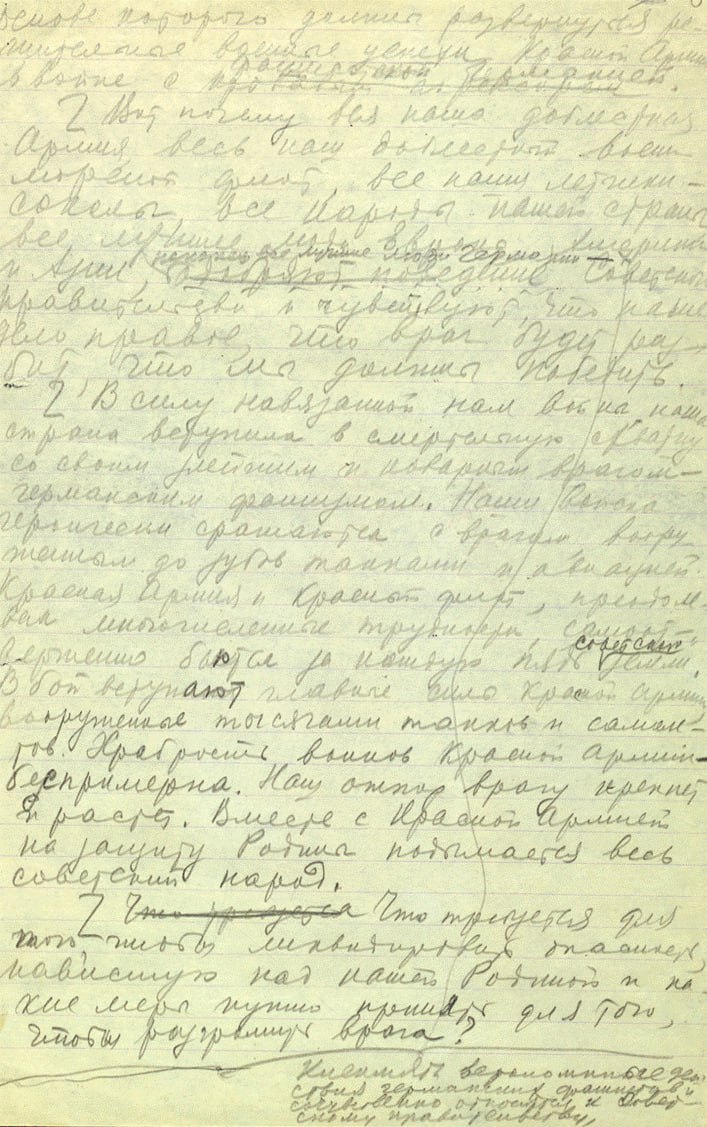 основе которого должны развернуться ре-
шительные военные успехи Красной Армии
в войне с фашистской Германией.
Вот почему вся наша доблестная
Армия, весь наш доблестный военно
морской флот, все наши летчики-
соколы все народы нашей страны
все лучшие люди Европы, Америки
и Азии, наконец все лучшие люди Германии —
одобряют поведение Советского
правительства и чувствуют, что наше
дело правое, что враг будет раз-
бит что мы должны победить.
В силу навязанной нам войны наша
страна вступила в смертельную схватку
со своим злейшим и коварным врагом —
германским фашизмом. Наши войска
героически сражаются с врагом воору
женным до зубов танками и авиацией.
Красная Армия и Красный флот, преодоле-
вая многочисленные трудности, самоот-
верженно бьются за каждую пядь советской земли.
В бой вступают главные силы Красной Армии,
вооруженные тысячами танков и самоле-
тов. Храбрость воинов Красной Армии —
беспримерна. Наш отпор врагу крепнет
и растет. Вместе с Красной Армией
на защиту Родины подымается весь
советский народ.
Что требуется Что требуется для
того, чтобы ликвидировать опасность,
нависшую над нашей Родиной и ка-
кие меры нужно принять для того,
чтобы разгромить врага?
вероломные дей
ствия германских фашистов и
сочувственно относятся к Совет-
скому правительству,